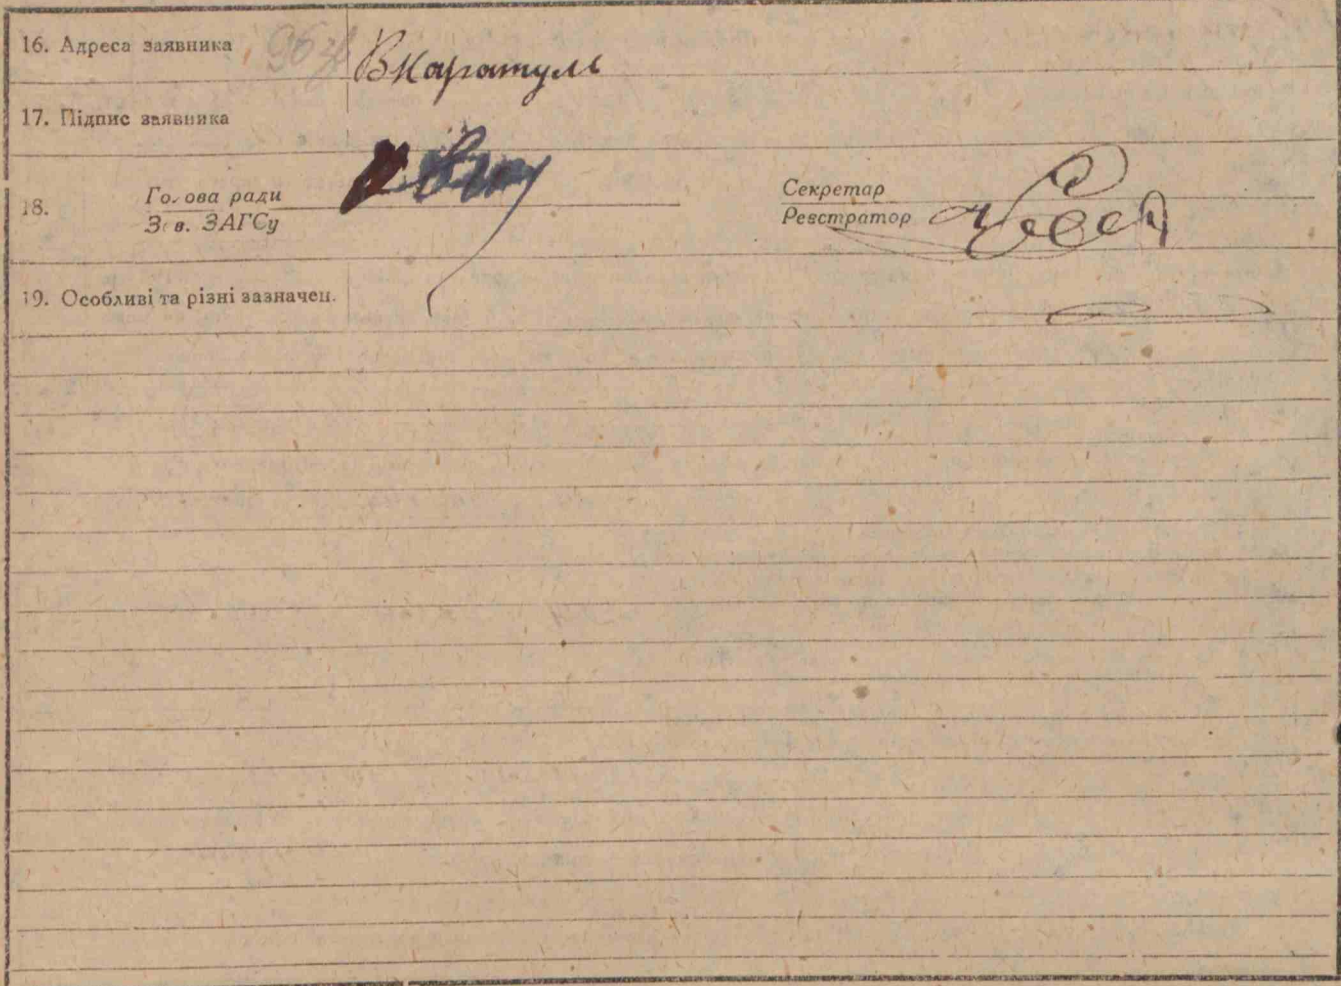 16. Адреса заявника В Каратуль
17. Підпис заявника
18. Голова ради Секретар
Зав. ЗАГСу Реєстратор
19. Особливі та різні зазначен.